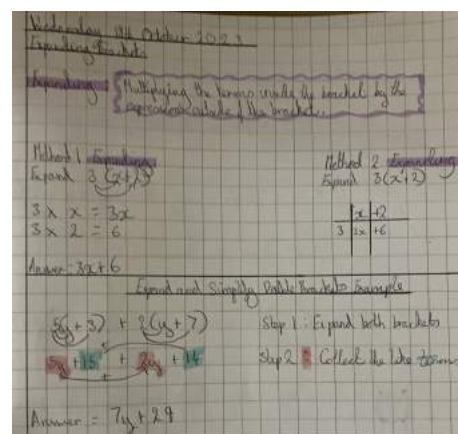 Wednesday 18th October 2023
Expanding Brackets
Expanding
Multiplying the terms inside the bracket by the
expression outside of the bracket.
Method 1 Expanding
Expand 3(x+2)
3 x x = 3x
3 x 2 = 6
Answer = 3x + 6
Method 2 Expanding
Expand 3(x+2)
x +2
3 3x +6
Expand and Simplify Double Brackets Example
5(y+3) + 2(y+7)
5y +15 + 2y +14
Answer = 7y + 29
Step 1: Expand both brackets
Step 2: Collect the like terms